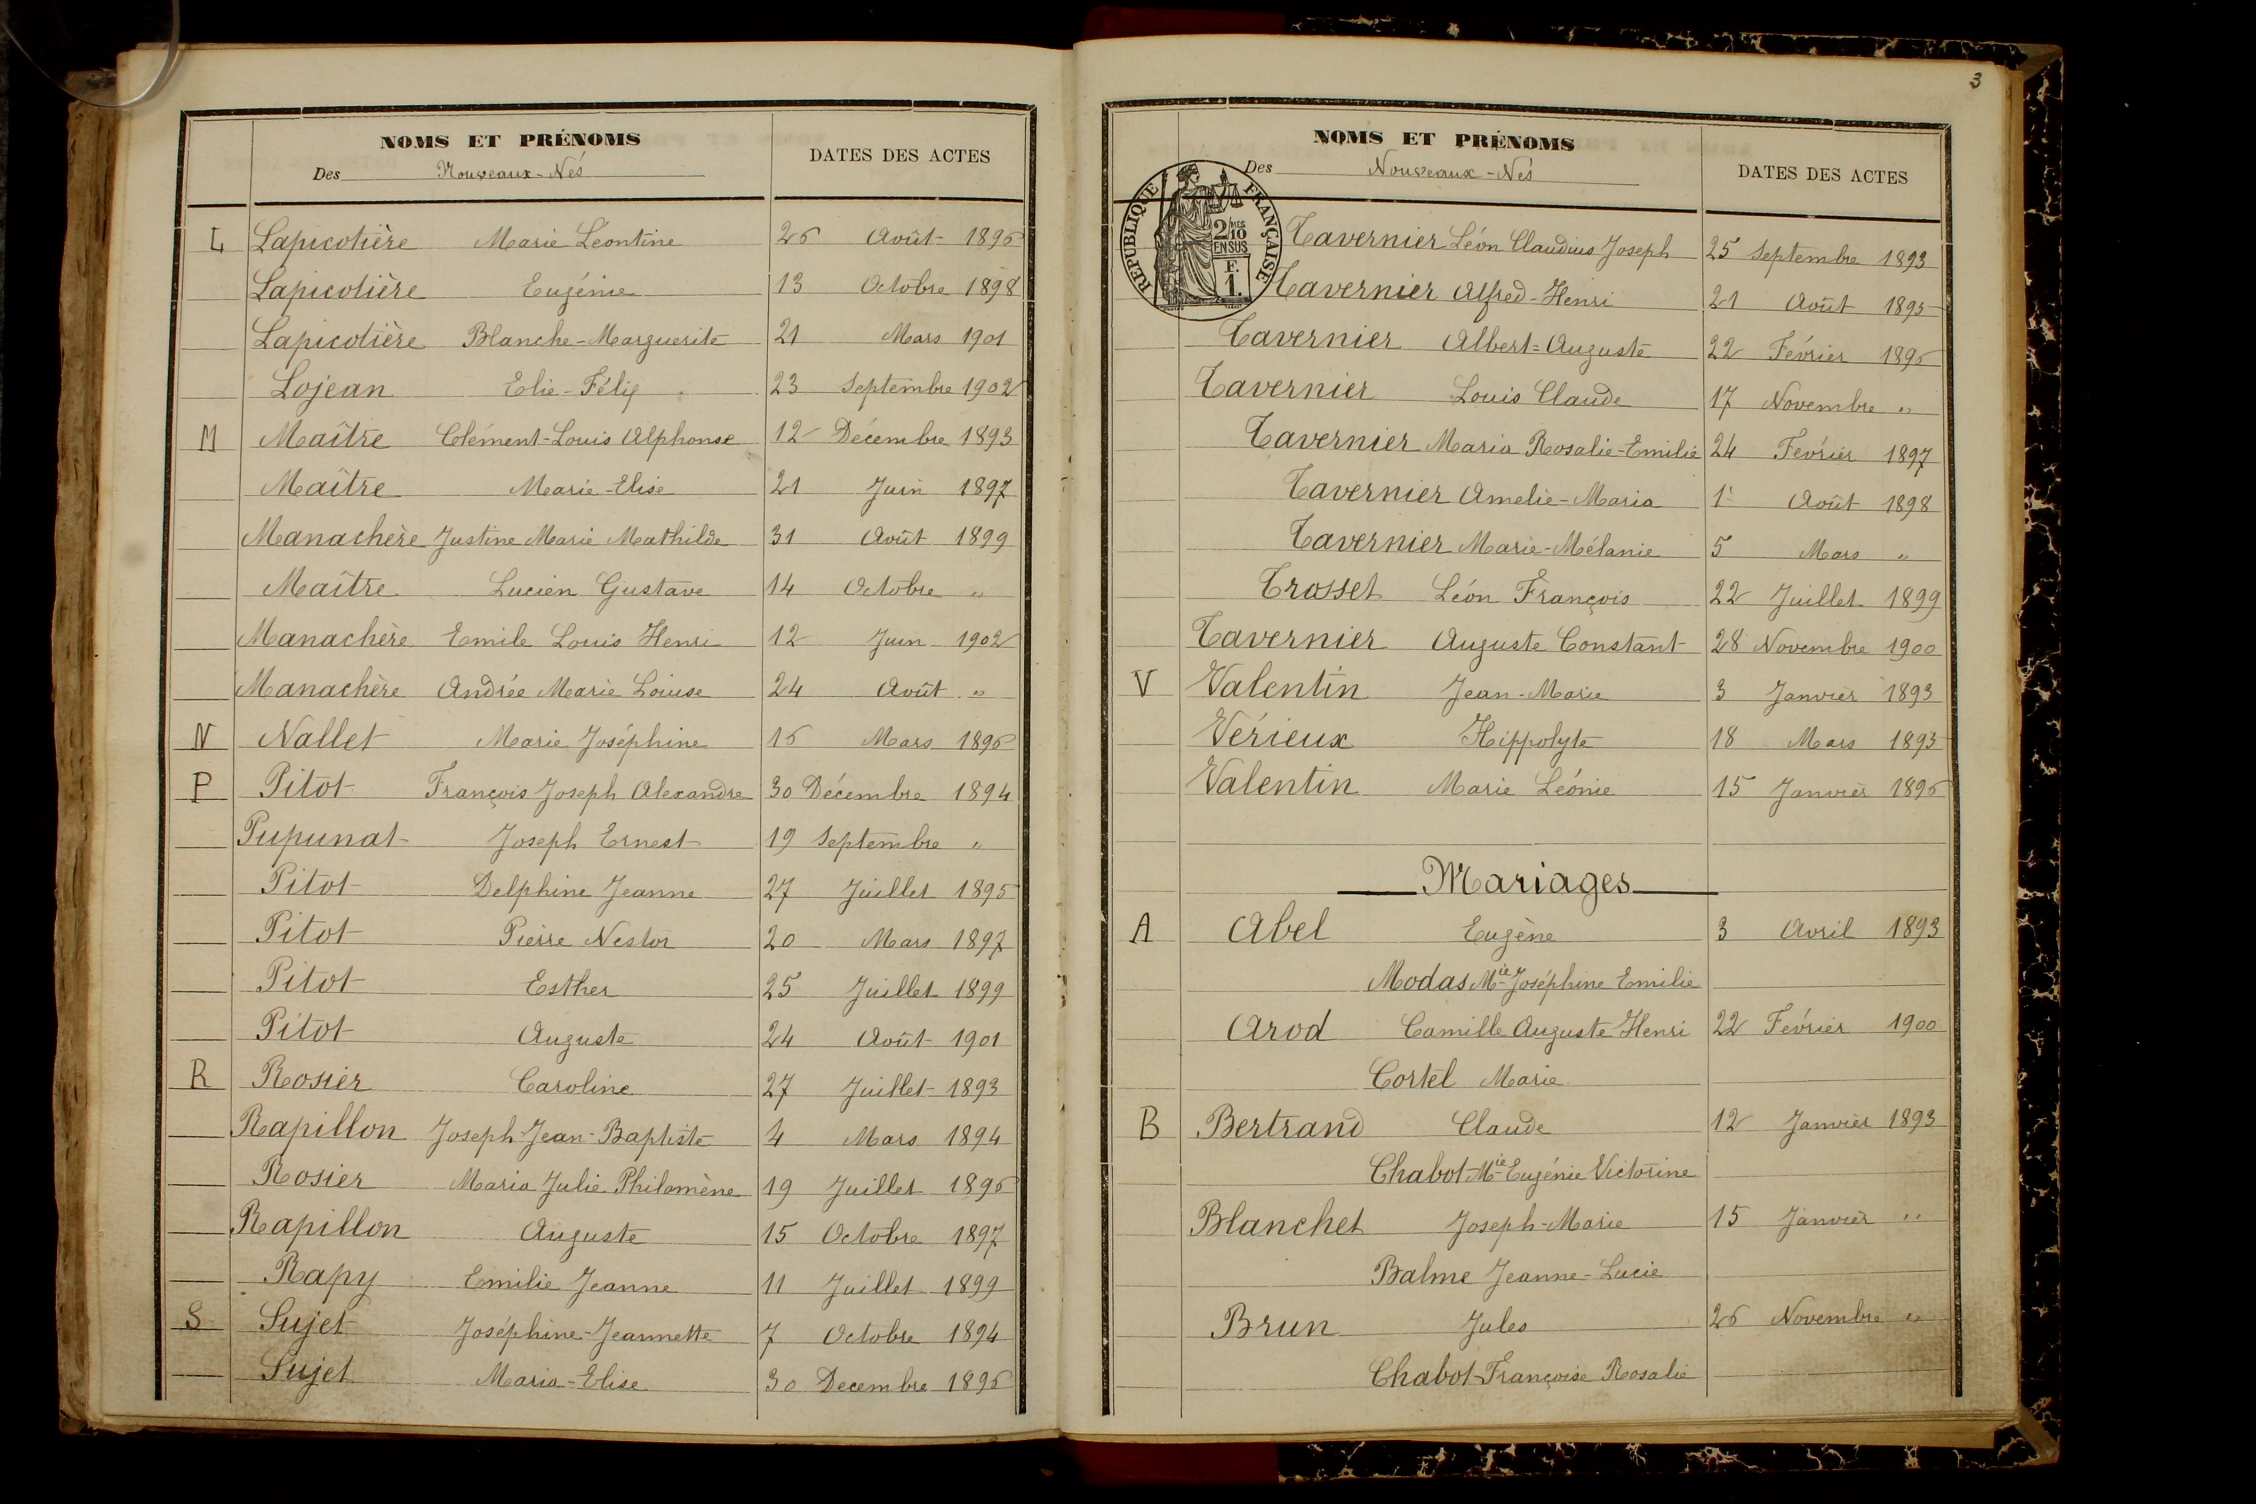 NOMS ET PRÉNOMS
Des Nouveaux-Nés
DATES DES ACTES
L Lapicotière Marie Léontine 26 Août 1896
Lapicotière Eugénie 13 Octobre 1898
Lapicotière Blanche-Marguerite 21 Mars 1901
Lojean Elie-Félix 23 Septembre 1902
M Maître Clément-Louis Alphonse 12 Décembre 1893
Maître Marie-Elise 21 Juin 1897
Manachère Justine Marie Mathilde 31 Août 1899
Maître Lucien Gustave 14 Octobre "
Manachère Emile Louis Henri 12 Juin 1902
Manachère Andrée Marie Loiuse 24 Août "
N Nallet Marie Joséphine 16 Mars 1896
P Pitot François Joseph Alexandre 30 Décembre 1894
Pupunat Joseph Ernest 19 Septembre "
Pitot Delphine Jeanne 27 Juillet 1895
Pitot Pierre Nestor 20 Mars 1897
Pitot Esther 25 Juillet 1899
Pitot Auguste 24 Août 1901
R Rosier Caroline 27 Juillet 1893
Rapillon Joseph-Jean-Baptiste 4 Mars 1894
Rosier Maria Julie Philomène 19 Juillet 1896
Rapillon Auguste 15 Octobre 1897
Rapy Emilie Jeanne 11 Juillet 1899
S Sujet Joséphine-Jeannette 7 Octobre 1894
Sujet Maria-Elise 30 Decembre 1896
3
NOMS ET PRÉNOMS
Des Nouveaux-Nés
DATES DES ACTES
RÉPUBLIQUE FRANÇAISE
2/10 MES
EN SUS
F.
1.
Tavernier Léon Claudius Joseph 25 Septembre 1893
Tavernier Alfred-Henri 21 Août 1895
Tavernier Albert=Auguste 22 Février 1896
Tavernier Louis Claude 17 Novembre "
Tavernier Maria Rosalie-Emilie 24 Février 1897
Tavernier Amelie-Maria 1r Août 1898
Tavernier Marie-Mélanie 5 Mars "
Trosset Léon François 22 Juillet 1899
Tavernier Auguste Constant 28 Novembre 1900
V Valentin Jean-Marie 3 Janvier 1893
Vérieux Hippolyte 18 Mars 1893
Valentin Marie Léonie 15 Janvier 1896
Mariages
A Abel Eugène 3 Avril 1893
Modas Mie Joséphine Emilie
Arod Camille Auguste Henri 22 Février 1900
Cortel Marie
B Bertrand Claude 12 Janvier 1893
Chabot Mie Eugénie Victorine
Blanchet Joseph-Marie 15 Janvier "
Balme Jeanne-Lucie
Brun Jules 26 Novembre "
Chabot Françoise Rosalie